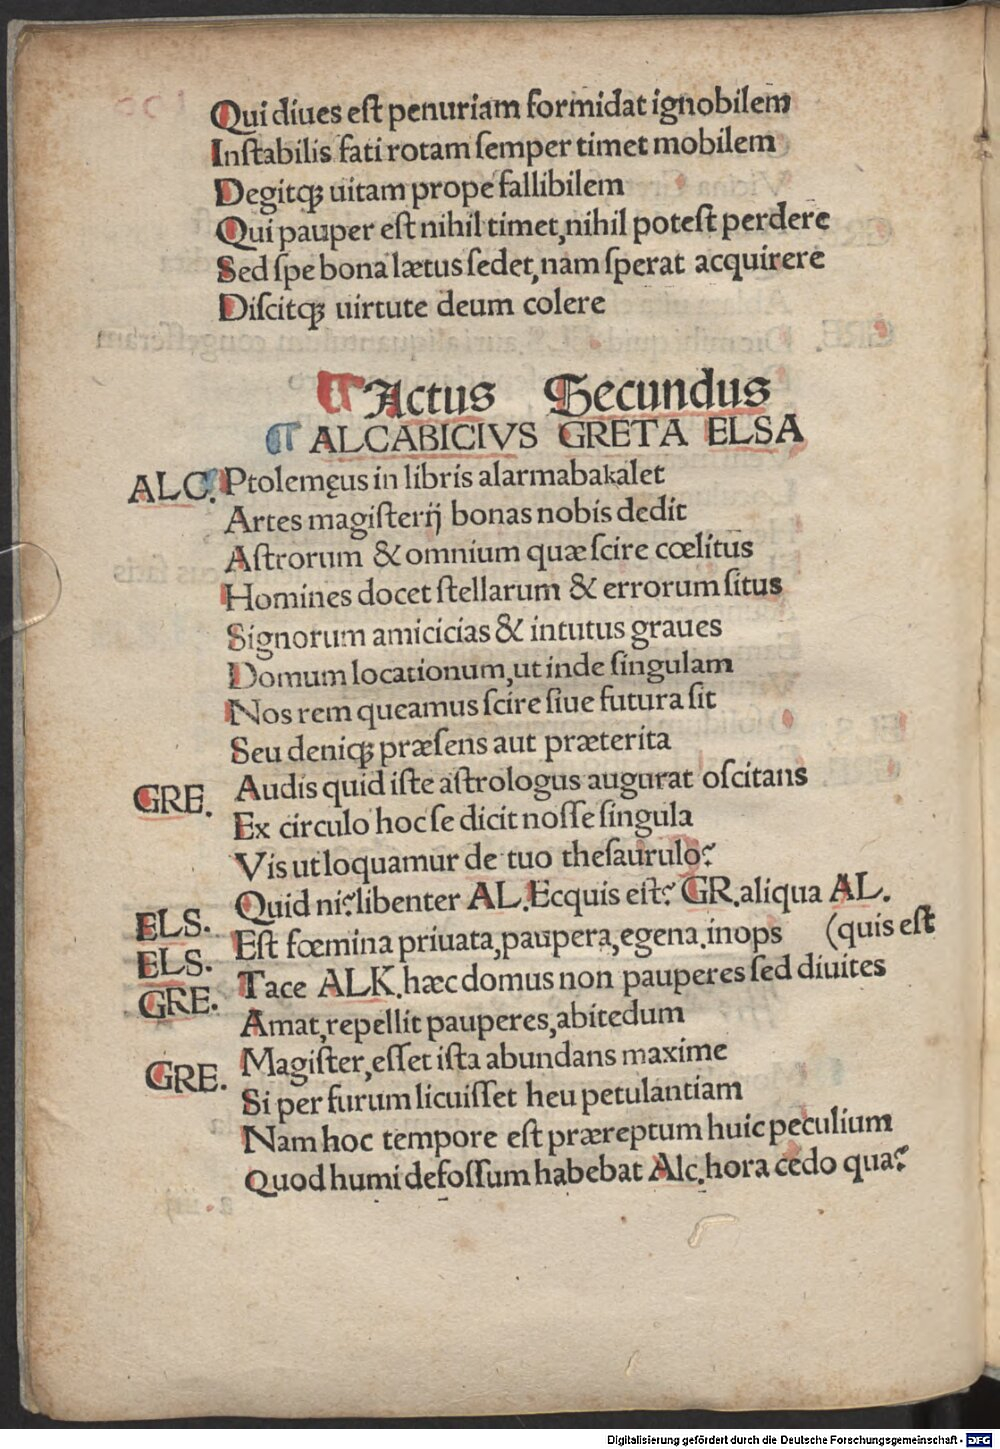 Qui diues est penuriam formidat ignobilem
Instabilis fati rotam semper timet mobilem
Degitqꝫ uitam prope fallibilem
Qui pauper est nihil timet,nihil potest perdere
Sed spe bona lætus sedet,nam sperat acquirere
Discitqꝫ uirtute deum colere
Actus Secundus
ALCABICIVS GRETA ELSA
ALC. Ptolemęus in libris alarmabakalet
Artes magisterij bonas nobis dedit
Astrorum & omnium quæ scire cœlitus
Homines docet stellarum & errorum situs
Signorum amicicias & intutus graues
Domum locationum,ut inde singulam
Nos rem queamus scire siue futura sit
Seu deniqꝫ præsens aut præterita
GRE. Audis quid iste astrologus augurat oscitans
Ex circulo hoc se dicit nosse singula
Vis ut loquamur de tuo thesaurulo?
ELS. Quid ni?libenter AL.Ecquis est? GR.aliqua AL.
ELS. Est fœmina priuata,paupera,egena.inops (quis est
GRE. Tace ALK.hæc domus non pauperes sed diuites
Amat,repellit pauperes,abitedum
GRE. Magister,esset ista abundans maxime
Si per furum licuisset heu petulantiam
Nam hoc tempore est præreptum huic peculium
Quod humi defossum habebat Alc.hora cedo qua?
Digitalisierung gefördert durch die Deutsche Forschungsgemeinschaft - DFG